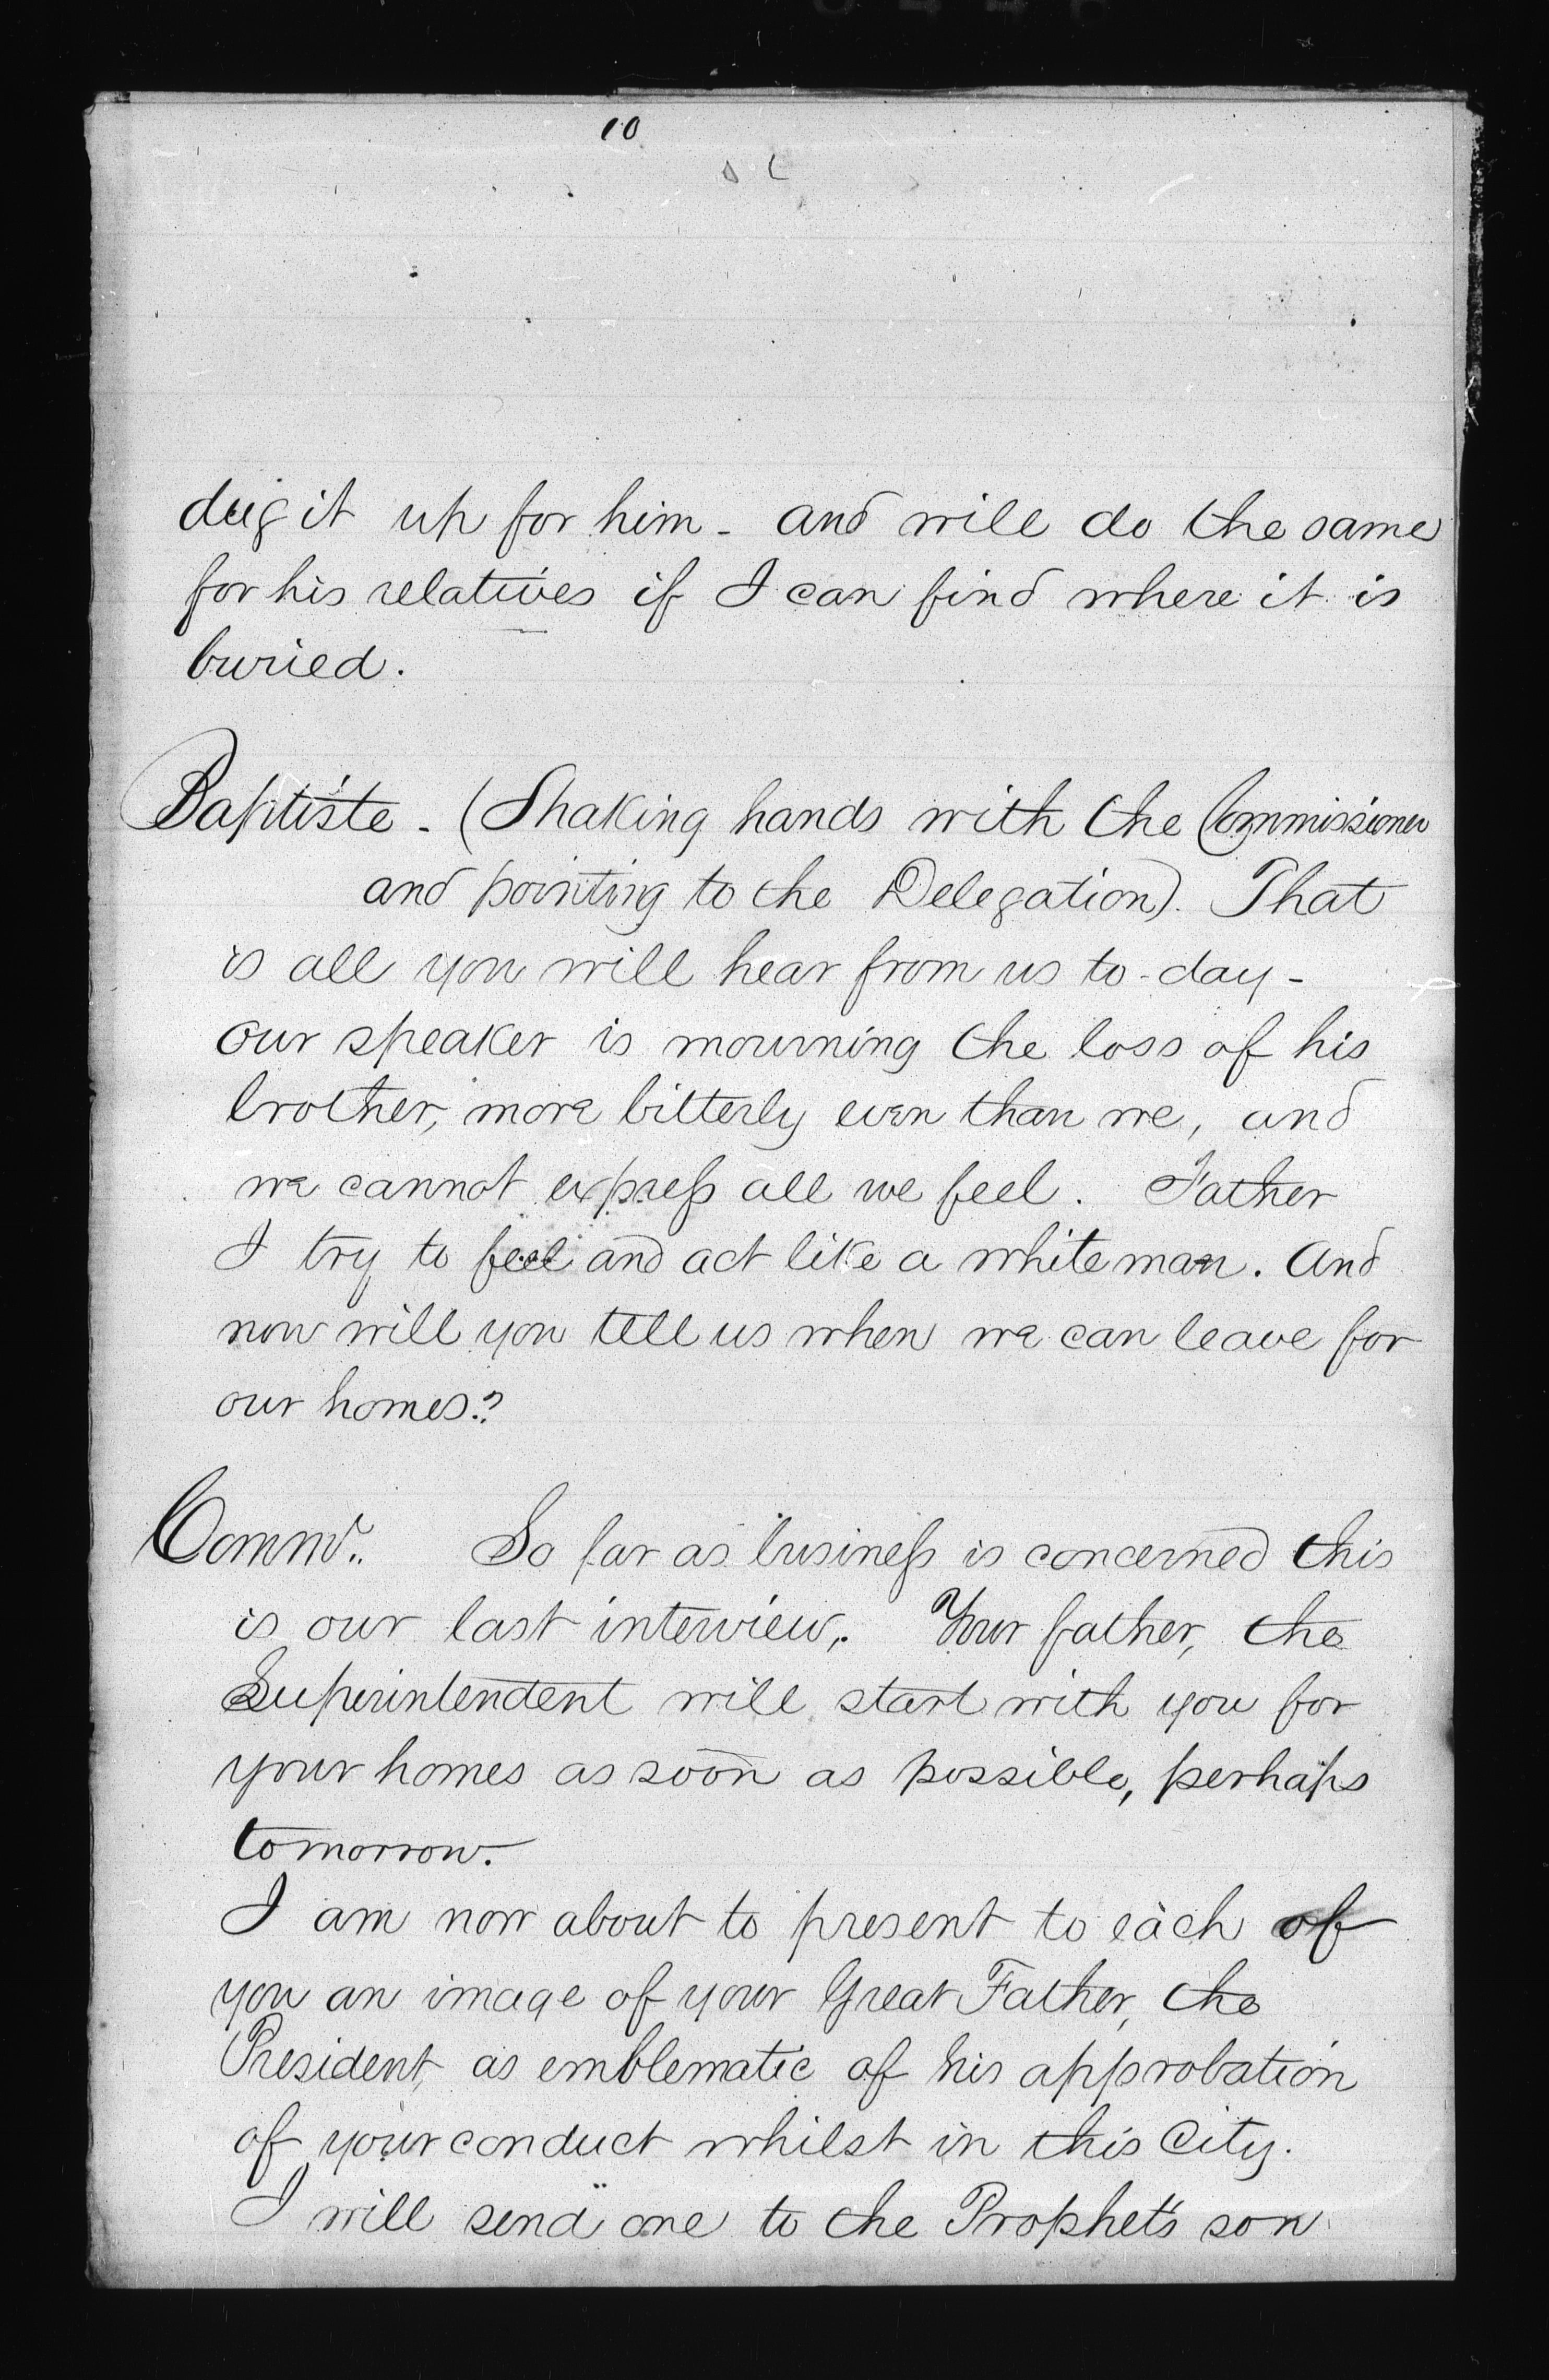 10
dug it up for him - and will do the same
for his relatives if I can find where it is
buried.
Baptiste - (Shaking hands with the Commissioner
and pointing to the Delegation). That
is all you will hear from us to-day -
our speaker is mourning the loss of his
brother, more bitterly even than we, and
we cannot express all we feel. Father
I try to feel and act like a white man. And
now will you tell us when we can leave for
our homes?
Commr. So far as business is concerned this
is our last interview,. Your father, the
Superintendent will start with you for
your homes as soon as possible, perhaps
tomorrow.
I am now about to present to each of
you an image of your Great Father, the
President, as emblematic of his approbation
of your conduct whilst in this City.
I will send one to the Prophet's son